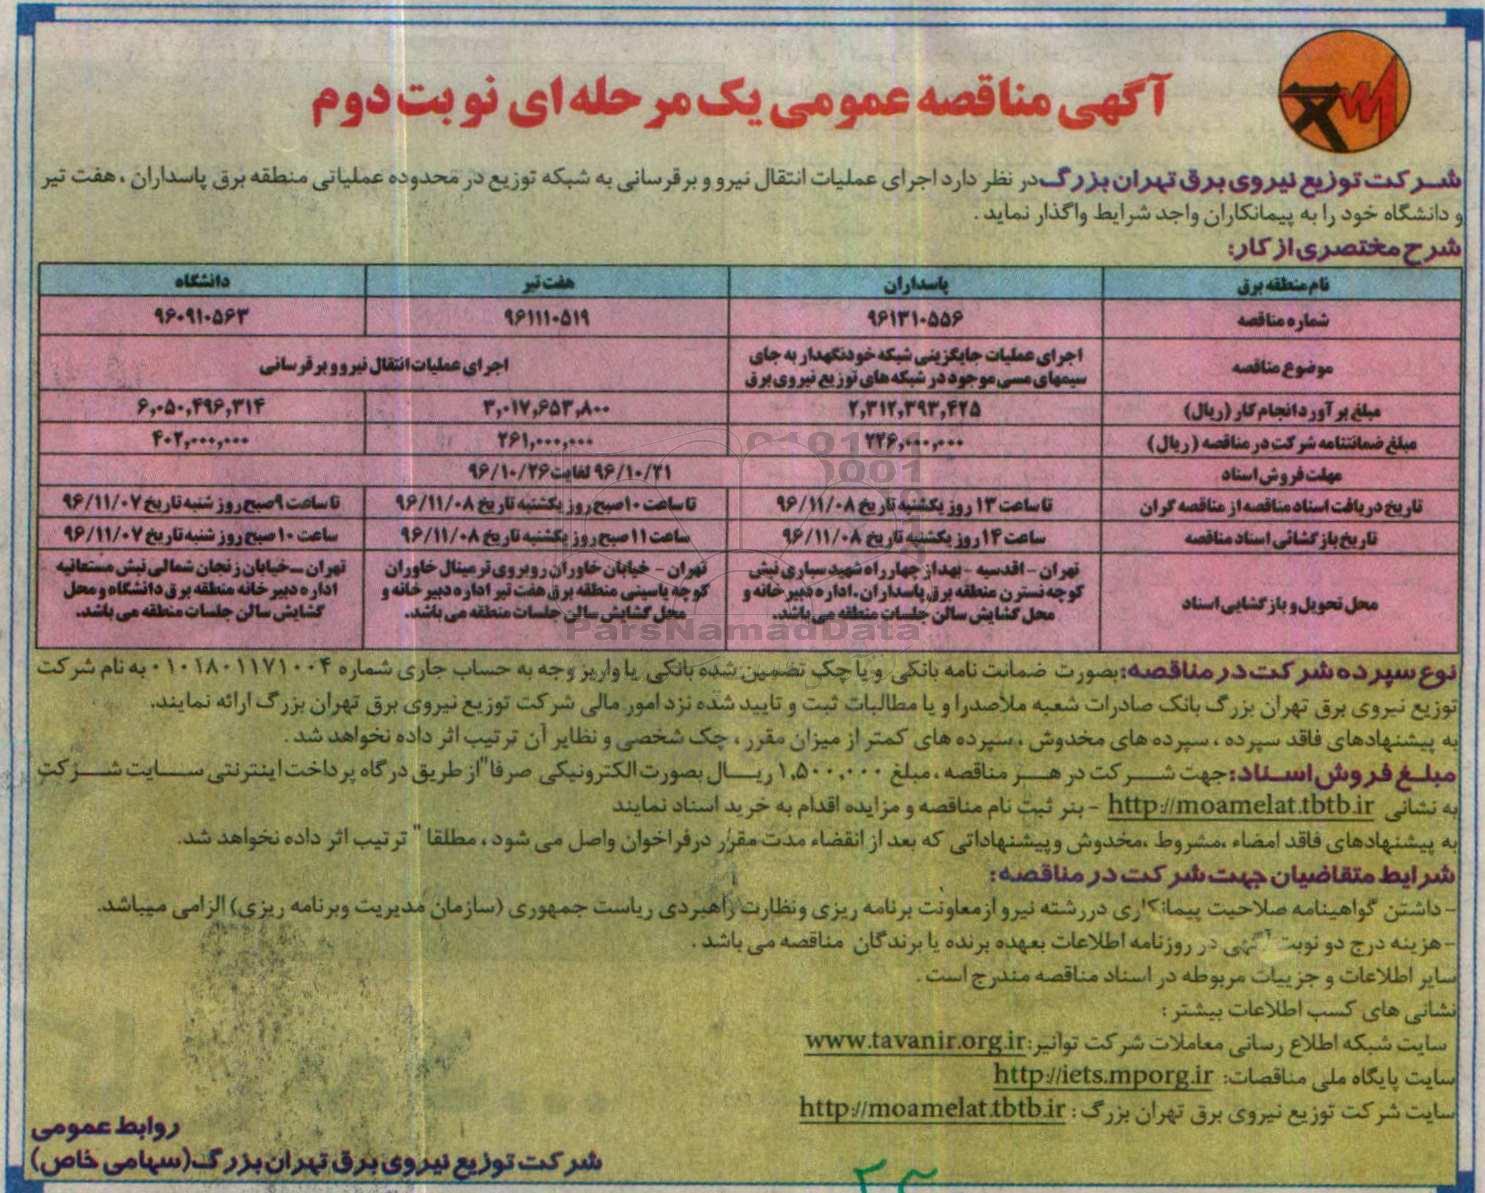 آگهی مناقصه عمومی یک مرحله ای نوبت دوم
شرکت توزیع نیروی برق تهران بزرگ در نظر دارد اجرای عملیات انتقال نیرو و برقرسانی به شبکه توزیع در محدوده عملیاتی منطقه برق پاسداران ، هفت تیر
و دانشگاه خود را به پیمانکاران واجد شرایط واگذار نماید .
شرح مختصری از کار:
نام منطقه برق پاسداران هفت تیر دانشگاه
شماره مناقصه ۹۶۱۳۱۰۵۵۶ ۹۶۱۱۱۰۵۱۹ ۹۶۰۹۱۰۵۶۳
موضوع مناقصه اجرای عملیات جایگزینی شبکه خودنگهدار به جای سیمهای مسی موجود در شبکه های توزیع نیروی برق اجرای عملیات انتقال نیرو و برقرسانی
مبلغ برآورد انجام کار (ریال) ۲,۳۱۲,۳۹۳,۴۲۵ ۳,۰۱۷,۶۵۳,۸۰۰ ۶,۰۵۰,۴۹۶,۳۱۴
مبلغ ضمانتنامه شرکت در مناقصه (ریال) ۲۲۶,۰۰۰,۰۰۰ ۲۶۱,۰۰۰,۰۰۰ ۴۰۲,۰۰۰,۰۰۰
مهلت فروش اسناد ۹۶/۱۰/۲۱ لغایت ۹۶/۱۰/۲۶
تاریخ دریافت اسناد مناقصه از مناقصه گران تا ساعت ۱۳ روز یکشنبه تاریخ ۹۶/۱۱/۰۸ تا ساعت ۱۰ صبح روز یکشنبه تاریخ ۹۶/۱۱/۰۸ تا ساعت ۹ صبح روز شنبه تاریخ ۹۶/۱۱/۰۷
تاریخ بازگشائی اسناد مناقصه ساعت ۱۴ روز یکشنبه تاریخ ۹۶/۱۱/۰۸ ساعت ۱۱ صبح روز یکشنبه تاریخ ۹۶/۱۱/۰۸ ساعت ۱۰ صبح روز شنبه تاریخ ۹۶/۱۱/۰۷
محل تحویل و بازگشایی اسناد
تهران - اقدسیه - بعد از چهارراه شهید سباری نبش
کوچه نسترن منطقه برق پاسداران . اداره دبیرخانه و
محل گشایش سالن جلسات منطقه می باشد.
تهران - خیابان خاوران روبروی ترمینال خاوران
کوچه یاسینی منطقه برق هفت تیر اداره دبیر خانه و
محل گشایش سالن جلسات منطقه می باشد.
تهران – خیابان زنجان شمالی نبش مستعانیه
اداره دبیر خانه منطقه برق دانشگاه و محل
گشایش سالن جلسات منطقه می باشد.
نوع سپرده شرکت در مناقصه: بصورت ضمانت نامه بانکی و یا چک تضمین شده بانکی یا واریز وجه به حساب جاری شماره ۰۱۰۱۸۰۱۱۷۱۰۰۴ به نام شرکت
توزیع نیروی برق تهران بزرگ بانک صادرات شعبه ملاصدرا و یا مطالبات ثبت و تایید شده نزد امور مالی شرکت توزیع نیروی برق تهران بزرگ ارائه نمایند.
به پیشنهادهای فاقد سپرده ، سپرده های مخدوش ، سپرده های کمتر از میزان مقرر ، چک شخصی و نظایر آن ترتیب اثر داده نخواهد شد .
مبلغ فروش اسناد: جهت شرکت در هر مناقصه ، مبلغ ۱,۵۰۰,۰۰۰ ریال بصورت الکترونیکی صرفا" از طریق درگاه پرداخت اینترنتی سایت شرکت
به نشانی http://moamelat.tbtb.ir - بنر ثبت نام مناقصه و مزایده اقدام به خرید اسناد نمایند
به پیشنهادهای فاقد امضاء ،مشروط ،مخدوش و پیشنهاداتی که بعد از انقضاء مدت مقرر در فراخوان واصل می شود ، مطلقا " ترتیب اثر داده نخواهد شد.
شرایط متقاضیان جهت شرکت در مناقصه:
- داشتن گواهینامه صلاحیت پیمانکاری در رشته نیرو از معاونت برنامه ریزی و نظارت راهبردی ریاست جمهوری (سازمان مدیریت و برنامه ریزی) الزامی میباشد.
- هزینه درج دو نوبت آگهی در روزنامه اطلاعات بعهده برنده یا برندگان مناقصه می باشد .
سایر اطلاعات و جزییات مربوطه در اسناد مناقصه مندرج است .
نشانی های کسب اطلاعات بیشتر :
سایت شبکه اطلاع رسانی معاملات شرکت توانیر: www.tavanir.org.ir
سایت پایگاه ملی مناقصات: http://iets.mporg.ir
سایت شرکت توزیع نیروی برق تهران بزرگ : http://moamelat.tbtb.ir
روابط عمومی
شرکت توزیع نیروی برق تهران بزرگ (سهامی خاص)
ParsNamadData